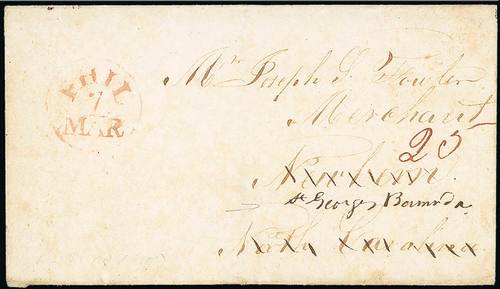 PHIL
7
MAR
Mr Joseph S. Fowler
Merchant
25
Newbern
St Georges Bermuda
North Carolina